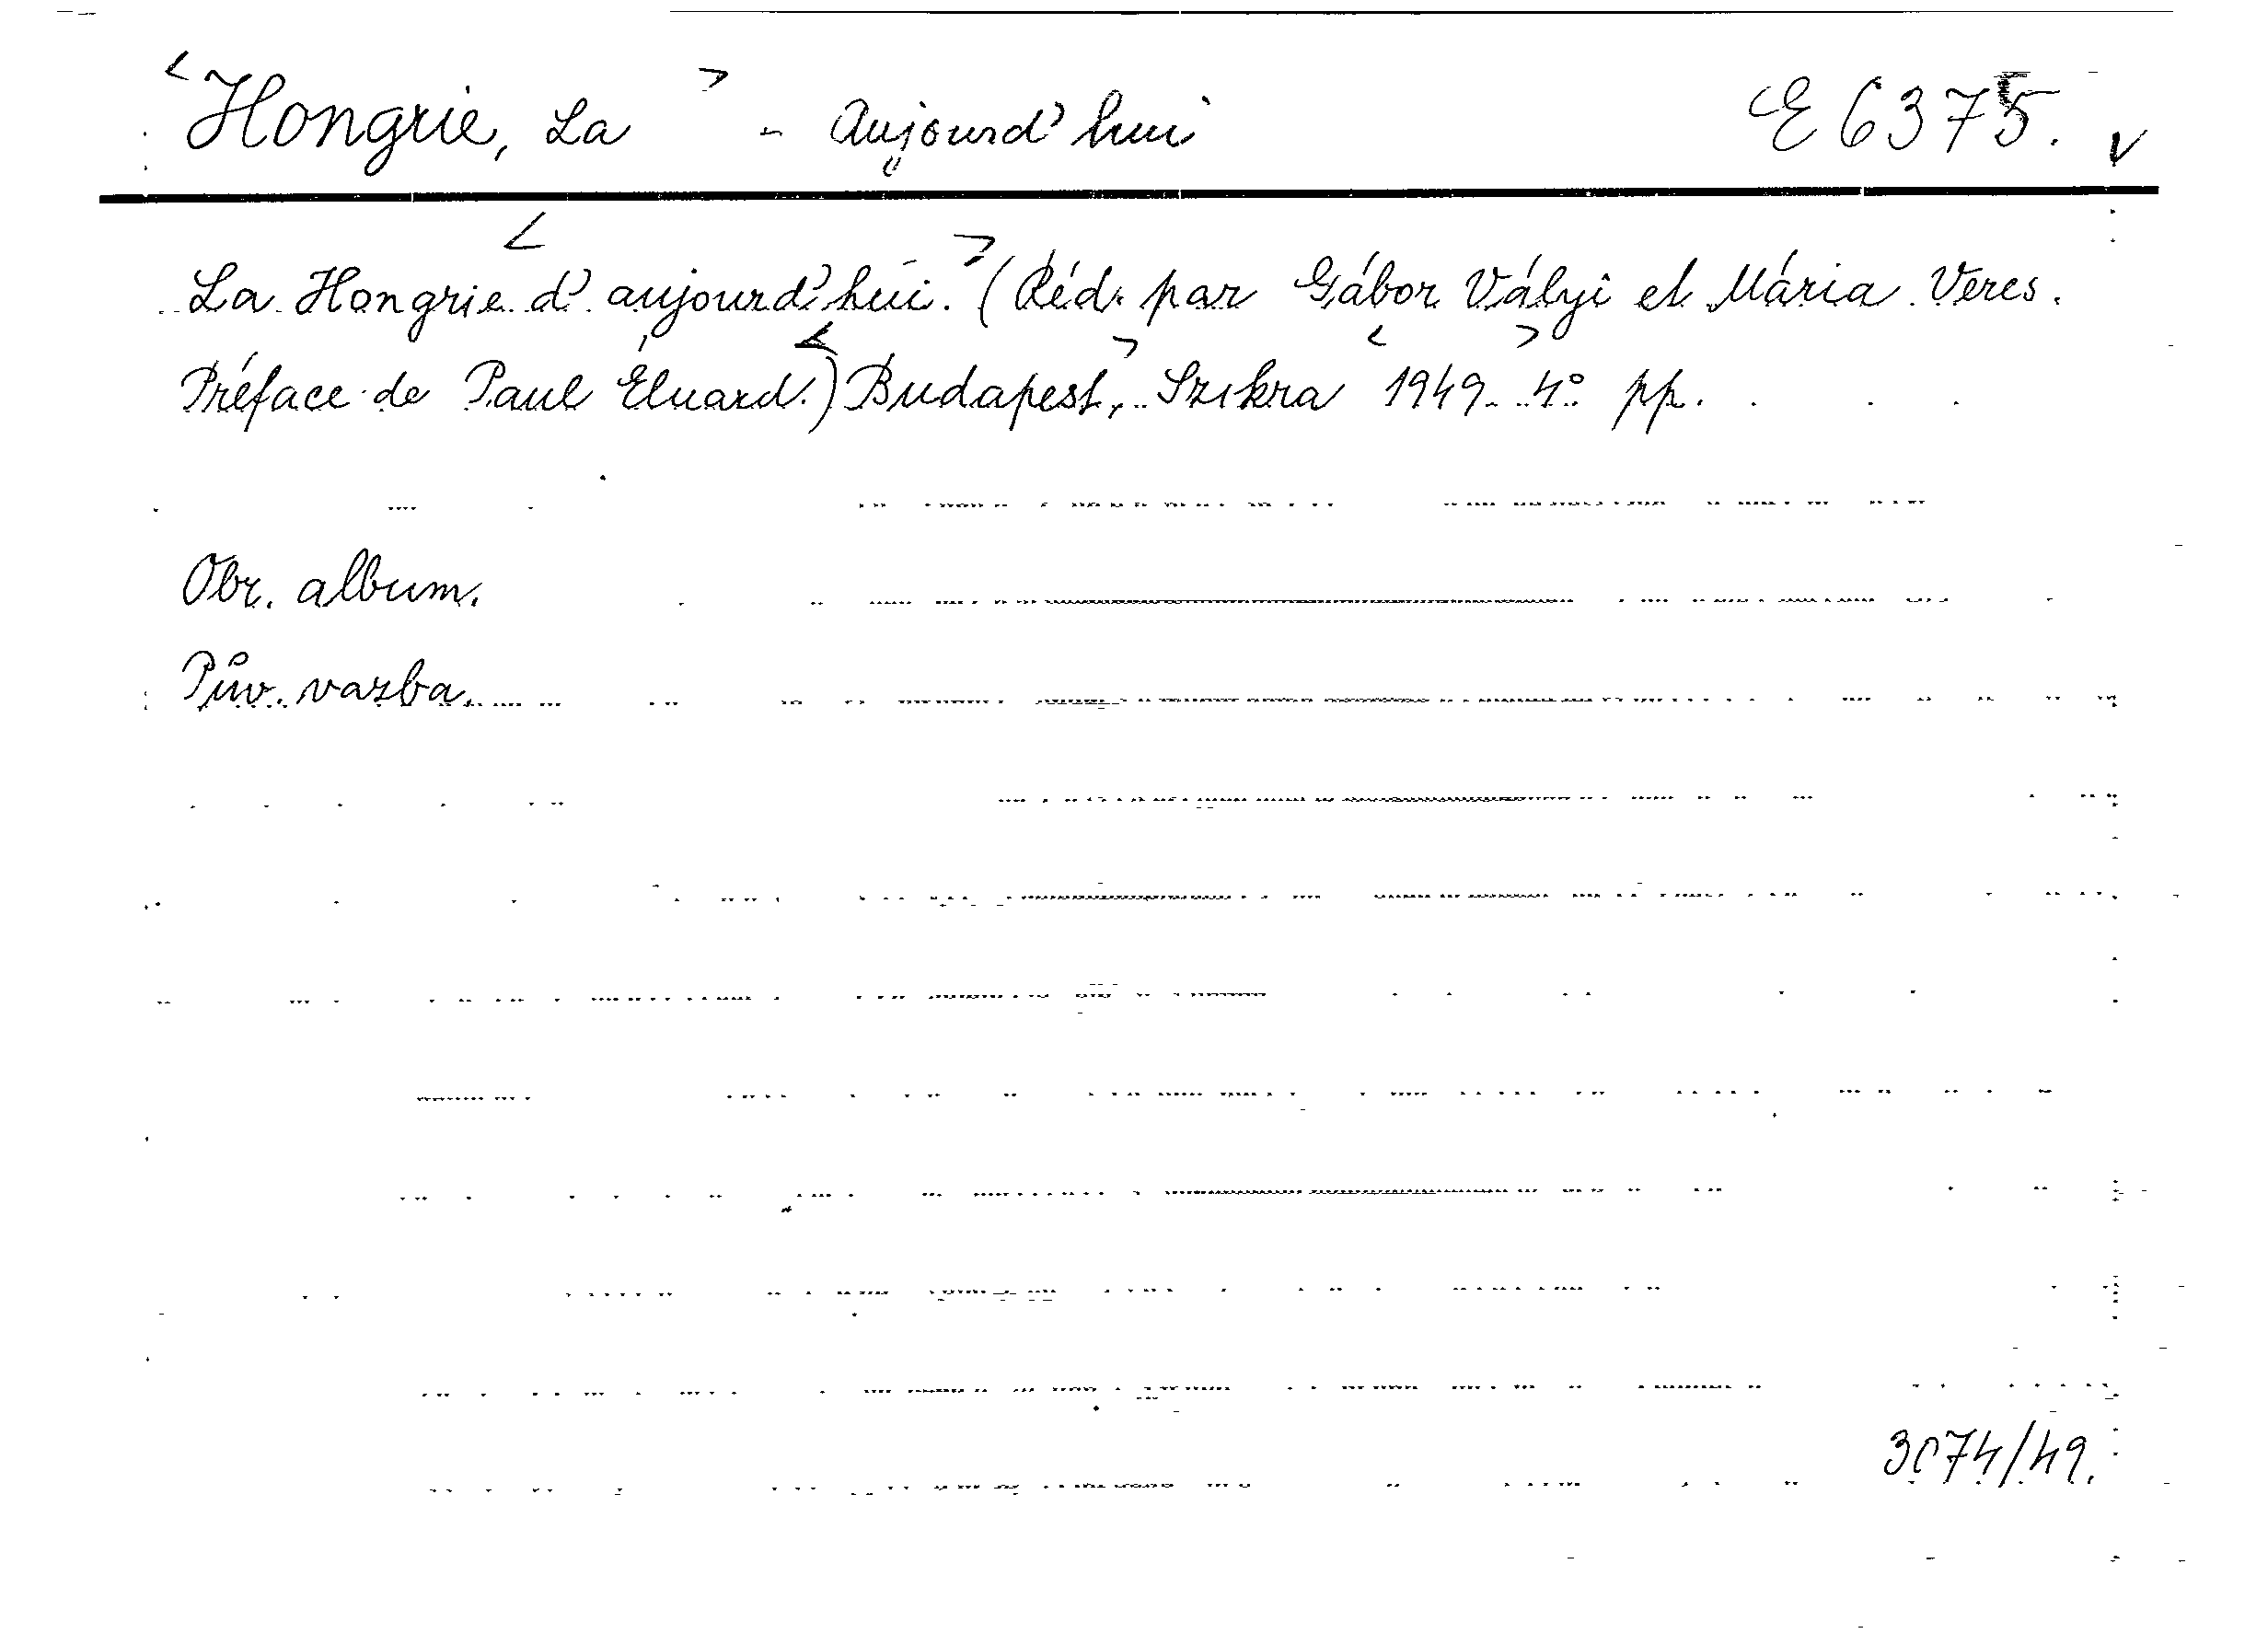 <Hongrie, La> - Aujourd'hui E 6375. v
La Hongrie <d'aujourd'hui.> (Réd. par Gábor Vályi et Mária Veres.
Préface de Paul Éluard.) <Budapest,> Szikra <1949> 4° pp.
Obr. album.
Pův. vazba.
3074/49.